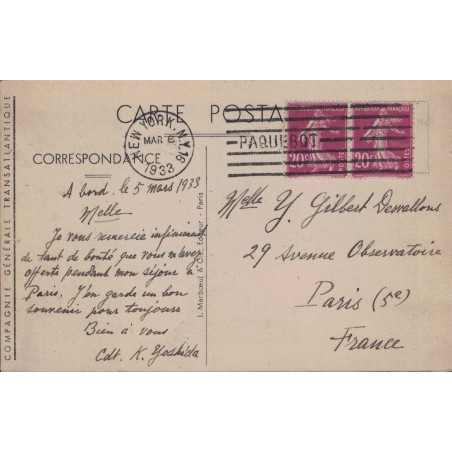 CARTE POSTA
NEW YORK, N.Y. 16
MAR
1933
PAQUEBOT
20
20
CORRESPONDANCE
A bord, le 5 mars 1933
Melle
Je vous remercie infiniment
de tant de bonté que vous
offerte pendant mon séjour à
Paris. J'en garde un bon
souvenir pour toujours
Bien à vous
Cdt. K. Yoshida
Melle Y. Gilbert Desvallons
29 Avenue Observatoire
Paris (5e)
France
COMPAGNIE GÉNÉRALE TRANSATLANTIQUE
L. Marbœuf & Cie, Editeur - Paris